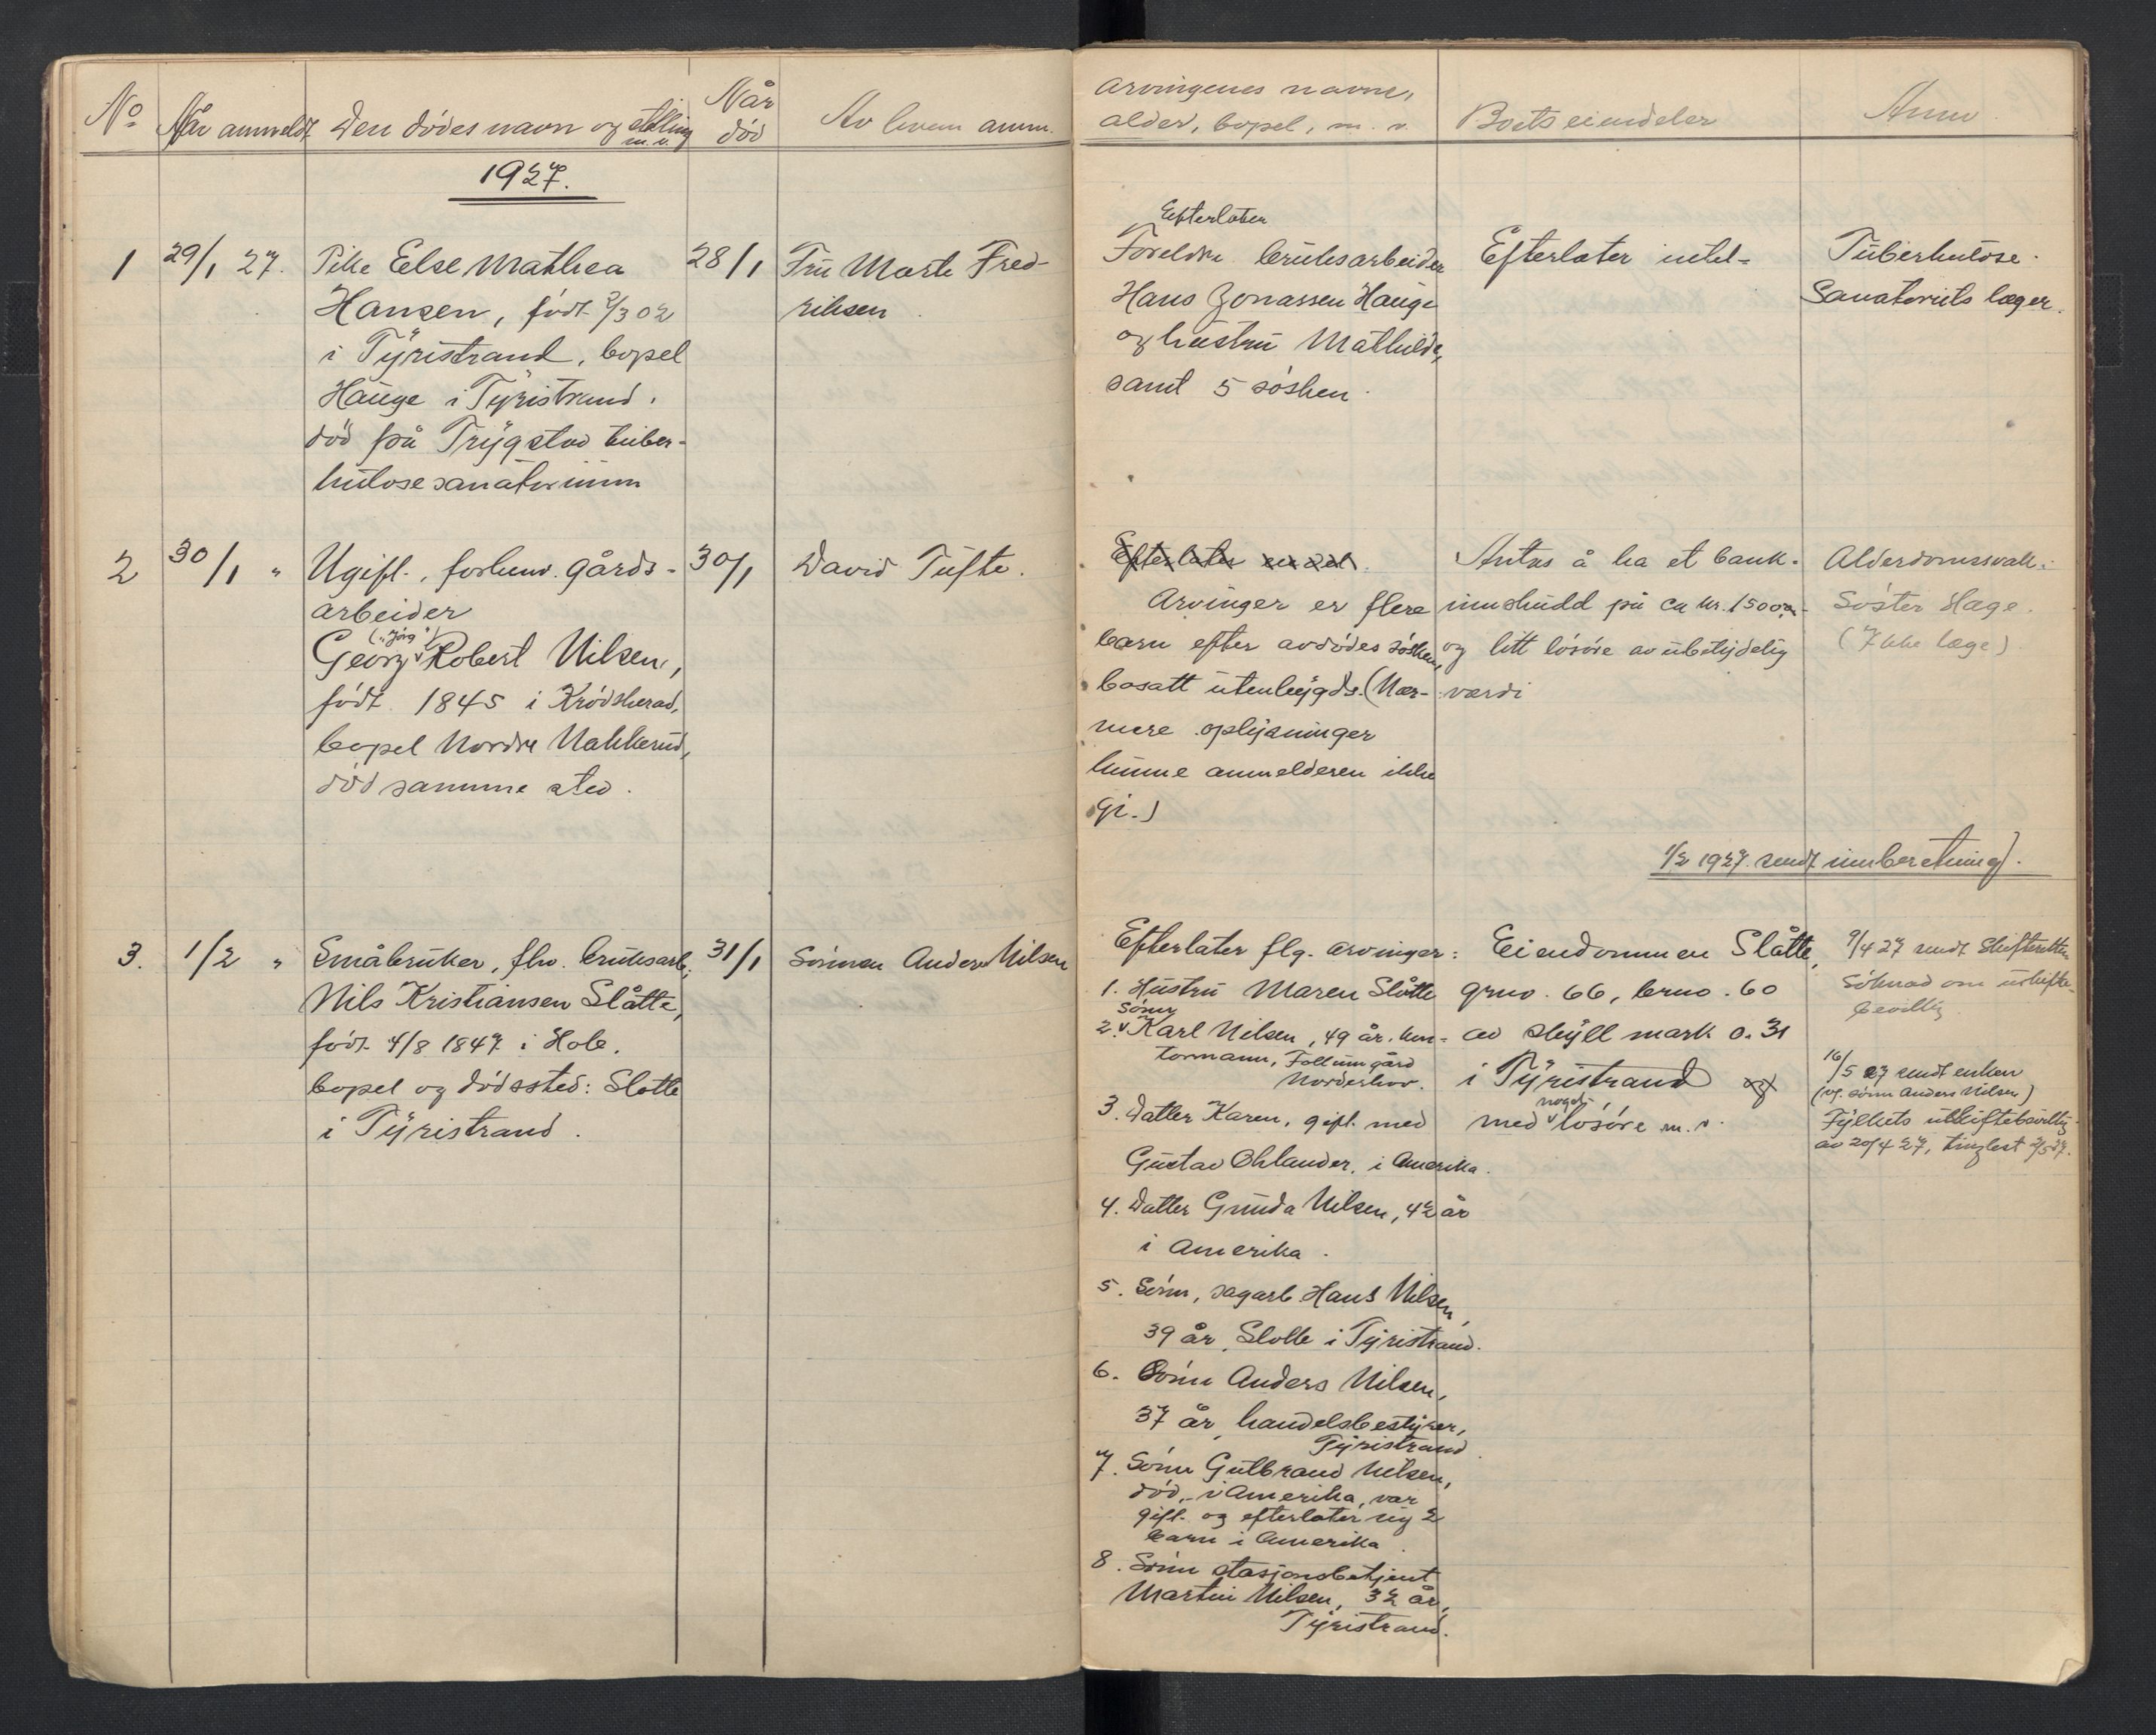 No
Når anmeldt
Den dødes navn og stilling m.v.
Når død
Av hvem anm.
Arvingenes navne,
alder, bopel, m.v.
Boets eiendeler
Anm
1927.
1
29/1 27.
Pike Else Mathea
Hansen, født 2/3 02
i Tyristrand, bopel
Hauge i Tyristrand.
død på Trygstad tuber-
kulosesanatorium
28/1
Fru Marte Fred-
riksen
Efterlater
Foreldre bruksarbeider
Hans Jonassen Hauge
og hustru Mathilde,
samt 5 søsken.
Efterlater intet-
Tuberkulose.
Sanatoriets læger.
2
30/1 "
Ugift, forhenv. gårds-
arbeider
("Jörg")
Georg Robert Nilsen,
født 1845 i Krødsherad,
bopel Nordre Nakkerud,
død samme sted.
30/1
David Tufte.
Efterlater
Arvinger er flere
barn efter avdødes søsken,
bosatt utenbygds. (Nær-
mere oplysninger
kunne anmelderen ikke
gi.)
Antas å ha et bank-
innskudd på ca kr. 1500,-
og litt løsøre av ubetydelig
værdi
Alderdomssvakh.
Søster Hage.
(Ikke læge)
1/2 1927 sendt innberetning.
3.
1/2 "
Småbruker, fhv. bruksarb.,
Nils Kristiansen Slåtte,
født 4/8 1847 i Hole.
bopel og dødssted: Slåtte
i Tyristrand.
31/1
Sønnen Anders Nilsen
Efterlater flg. arvinger:
1. Hustru Maren Slåtte
Sønn
2. Karl Nilsen, 49 år, kon-
tormann, Follum gård
Norderhov.
3. Datter Karen, gift med
Gustav Ohlander, i Amerika.
4. Datter Gunda Nilsen, 42 år
i Amerika.
5. Sønn, sagarb. Hans Nilsen,
39 år, Slåtte i Tyristrand.
6. Sønn Anders Nilsen,
37 år, handelsbestyrer,
Tyristrand
7. Sønn Gulbrand Nilsen,
død i Amerika, var
gift og efterlater sig 2
barn i Amerika.
8. Sønn stasjonsbetjent
Martin Nilsen, 32 år,
Tyristrand.
Eiendommen Slåtte,
grno. 66, brno. 60
av skyll mark 0.31
i Tyristrand og
noget
med løsøre m.v.
9/4 27 sendt Skifteretten
Søknad om uskifte-
bevillig.
16/5 27 sendt enken
(v/ sønn Anders Nilsen)
Fylkets uskiftebevillig
av 20/4 27, tinglest 2/5 27.